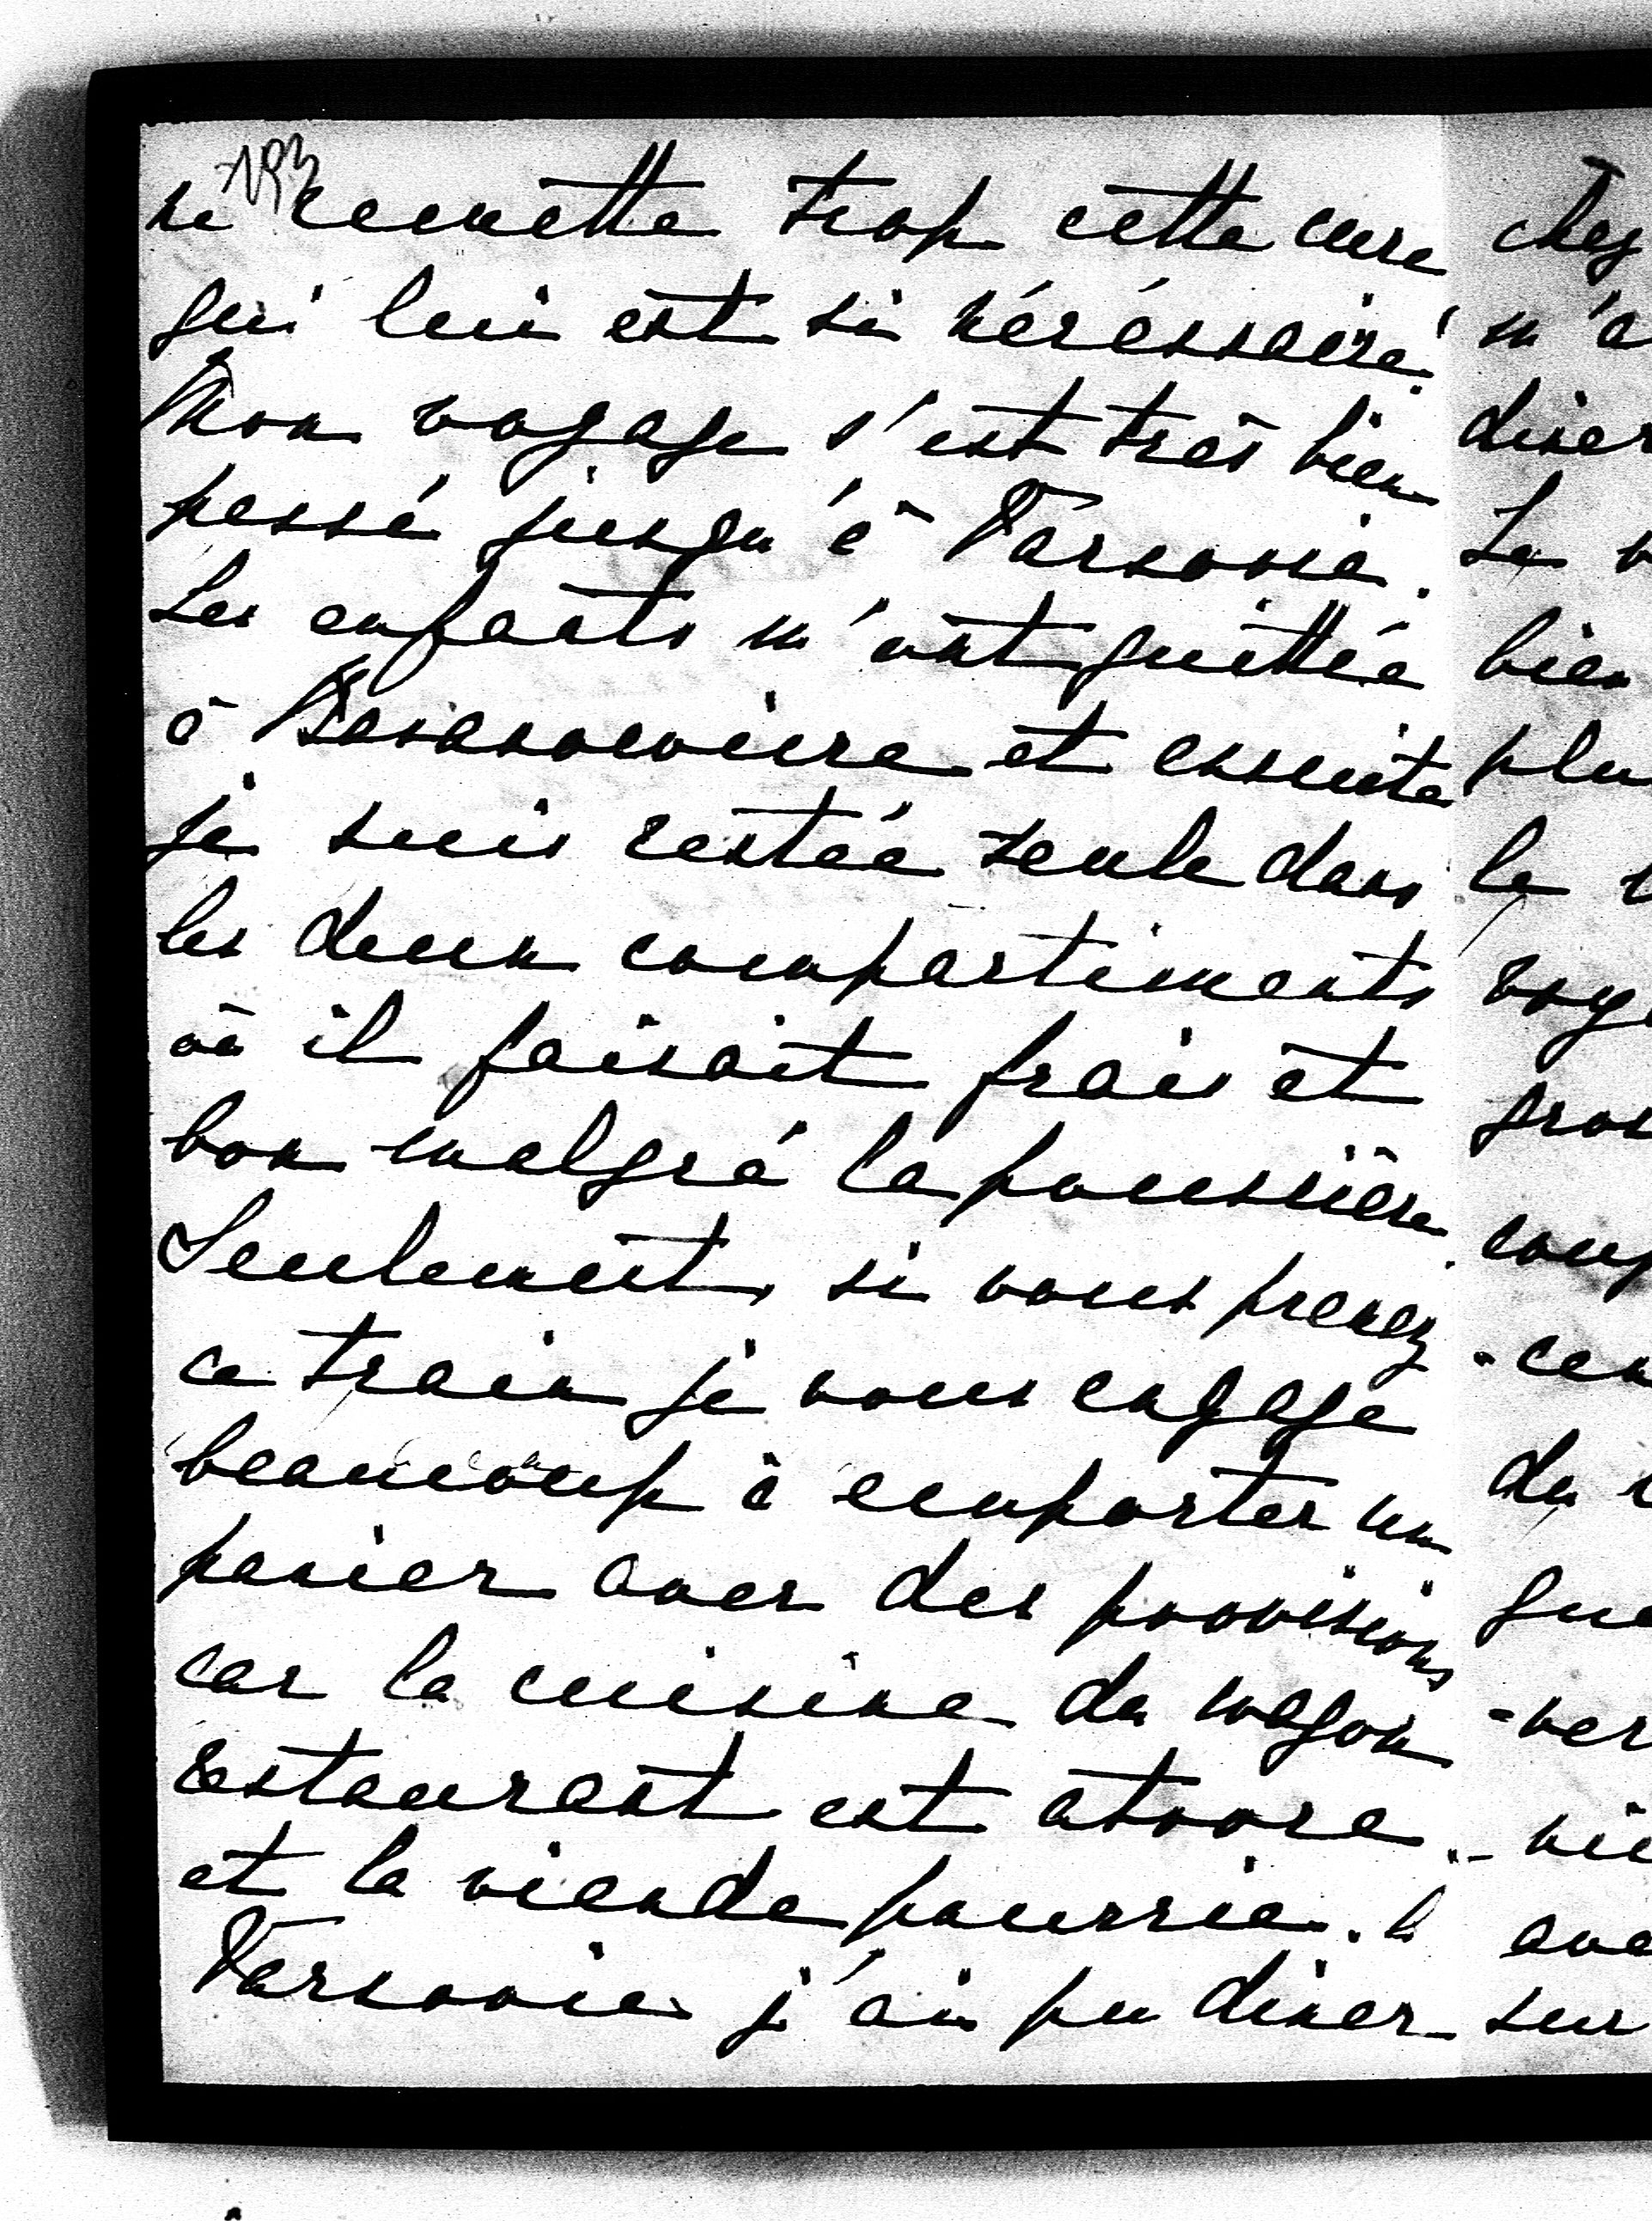 193
ne remette trop cette cure
qui lui est si nécéssaire!
Mon voyage s'est très bien
passé jusqu'à Varsovie.
Les enfants m'ont quittée
à et ensuite
je suis restée seule dans
les deux compartiments
où il faisait frais et
bon malgré la poussière.
Seulement, si vous prenez
ce train je vous engage
beaucoup à emporter un
panier avec des provisions
car la cuisine du wagon
restaurant est atroce
et la viande pourrie. à
Varsovie j'ai pu diner
chez
m'a
diner
La
bien
plu
le
voy
gros
comp
-cen
du
que
-ver
ave
sur